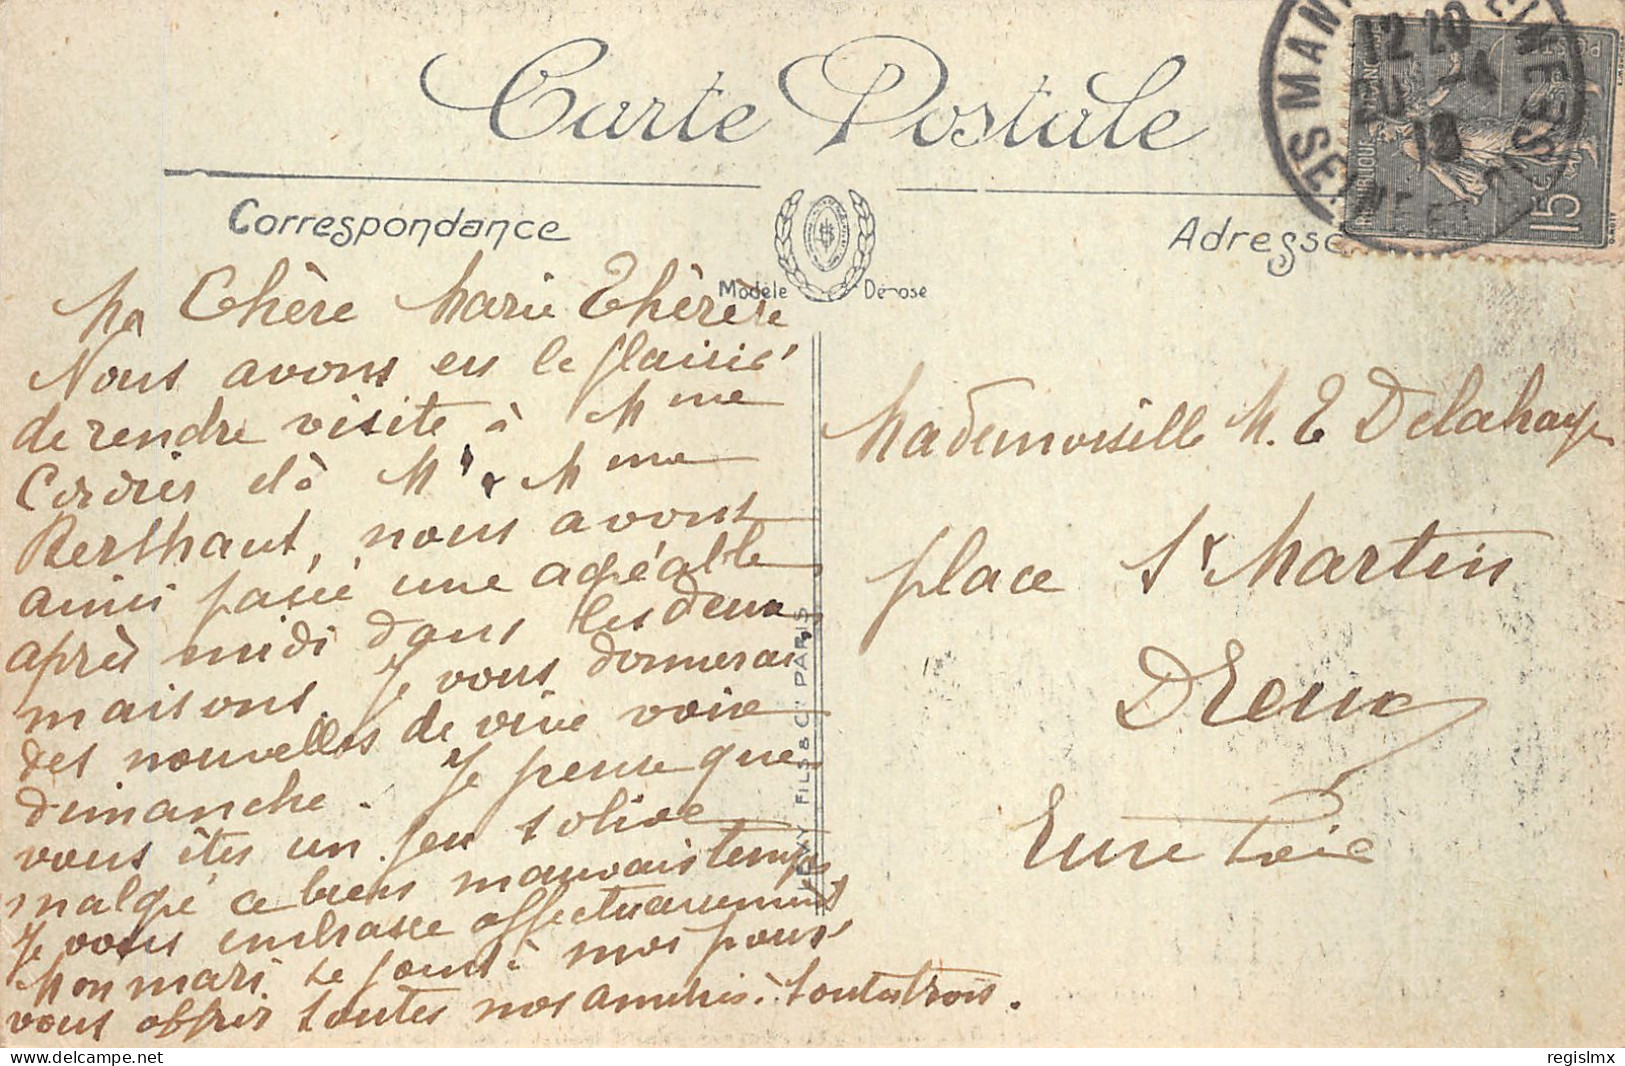 Carte Postale
Correspondance
Adresse
Modèle Déposé
MANTES
SEINE ET OISE
12 20
15c
Ma Chère Marie Thérèse
Nous avons eu le plaisir
de rendre visite à Mme
Cordier et à Mr & Mme
Berthaut, nous avons
ainsi passé une agréable
après midi dans les deux
maisons. Je vous donnerai
des nouvelles de vive voix
dimanche. Je pense que
vous êtes un peu solide
malgré ce bien mauvais temps
Je vous embrasse affectueusement
Mon mari se joint à moi pour
vous offrir toutes nos amitiés à toutes trois.
Mademoiselle M. T Delahaye
place St Martin
Dreux
Eure et Loir
LEVY FILS & Cie PARIS
regislmx